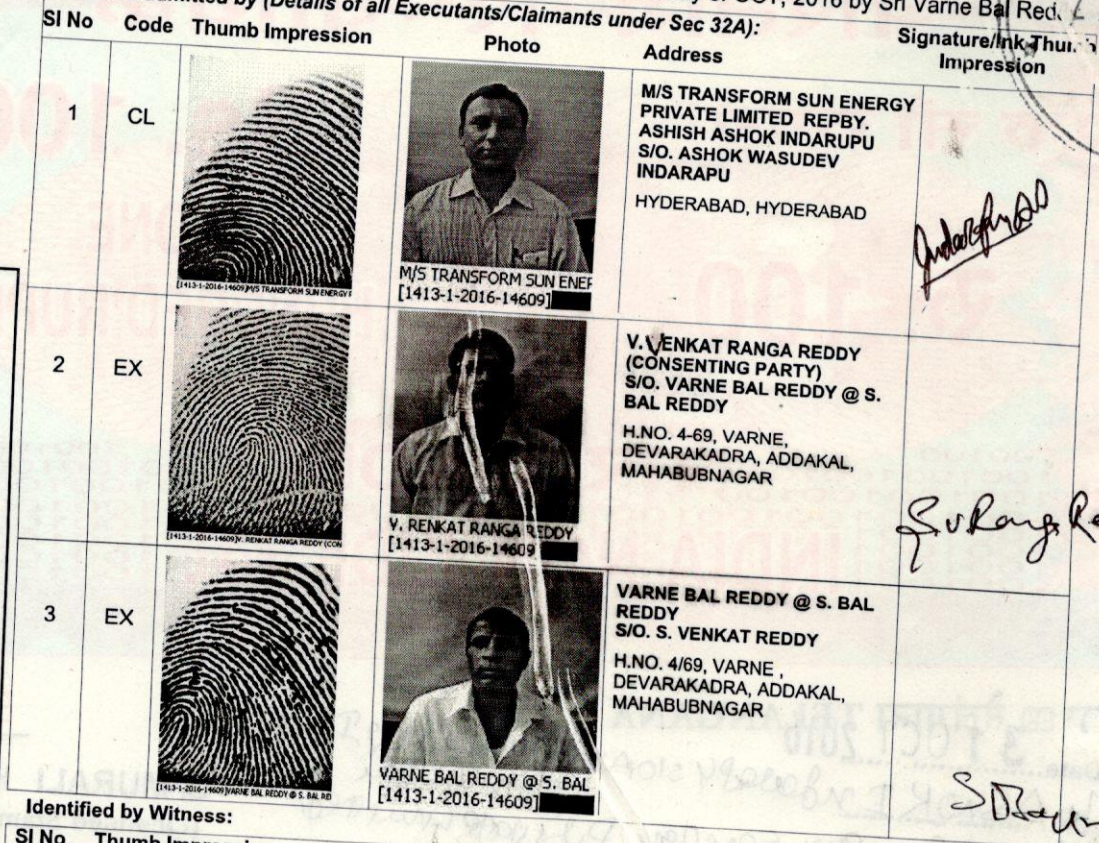 by (Details of all Executants/Claimants under Sec 32A):
2016 by Sri Varne Bal
Sl No Code Thumb Impression Photo Address Signature/Ink Thumb Impression
1 CL
[1413-1-2016-14609]M/S TRANSFORM SUN ENERGY P
M/S TRANSFORM SUN ENER
[1413-1-2016-14609]
M/S TRANSFORM SUN ENERGY
PRIVATE LIMITED REPBY.
ASHISH ASHOK INDARUPU
S/O. ASHOK WASUDEV
INDARAPU
HYDERABAD, HYDERABAD
2 EX
[1413-1-2016-14609]V. RENKAT RANGA REDDY (CON
V. RENKAT RANGA REDDY
[1413-1-2016-14609
V. VENKAT RANGA REDDY
(CONSENTING PARTY)
S/O. VARNE BAL REDDY @ S.
BAL REDDY
H.NO. 4-69, VARNE,
DEVARAKADRA, ADDAKAL,
MAHABUBNAGAR
3 EX
[1413-1-2016-14609]VARNE BAL REDDY @ S. BAL RED
VARNE BAL REDDY @ S. BAL
[1413-1-2016-14609]
VARNE BAL REDDY @ S. BAL
REDDY
S/O. S. VENKAT REDDY
H.NO. 4/69, VARNE ,
DEVARAKADRA, ADDAKAL,
MAHABUBNAGAR
Identified by Witness:
Sl No Thumb